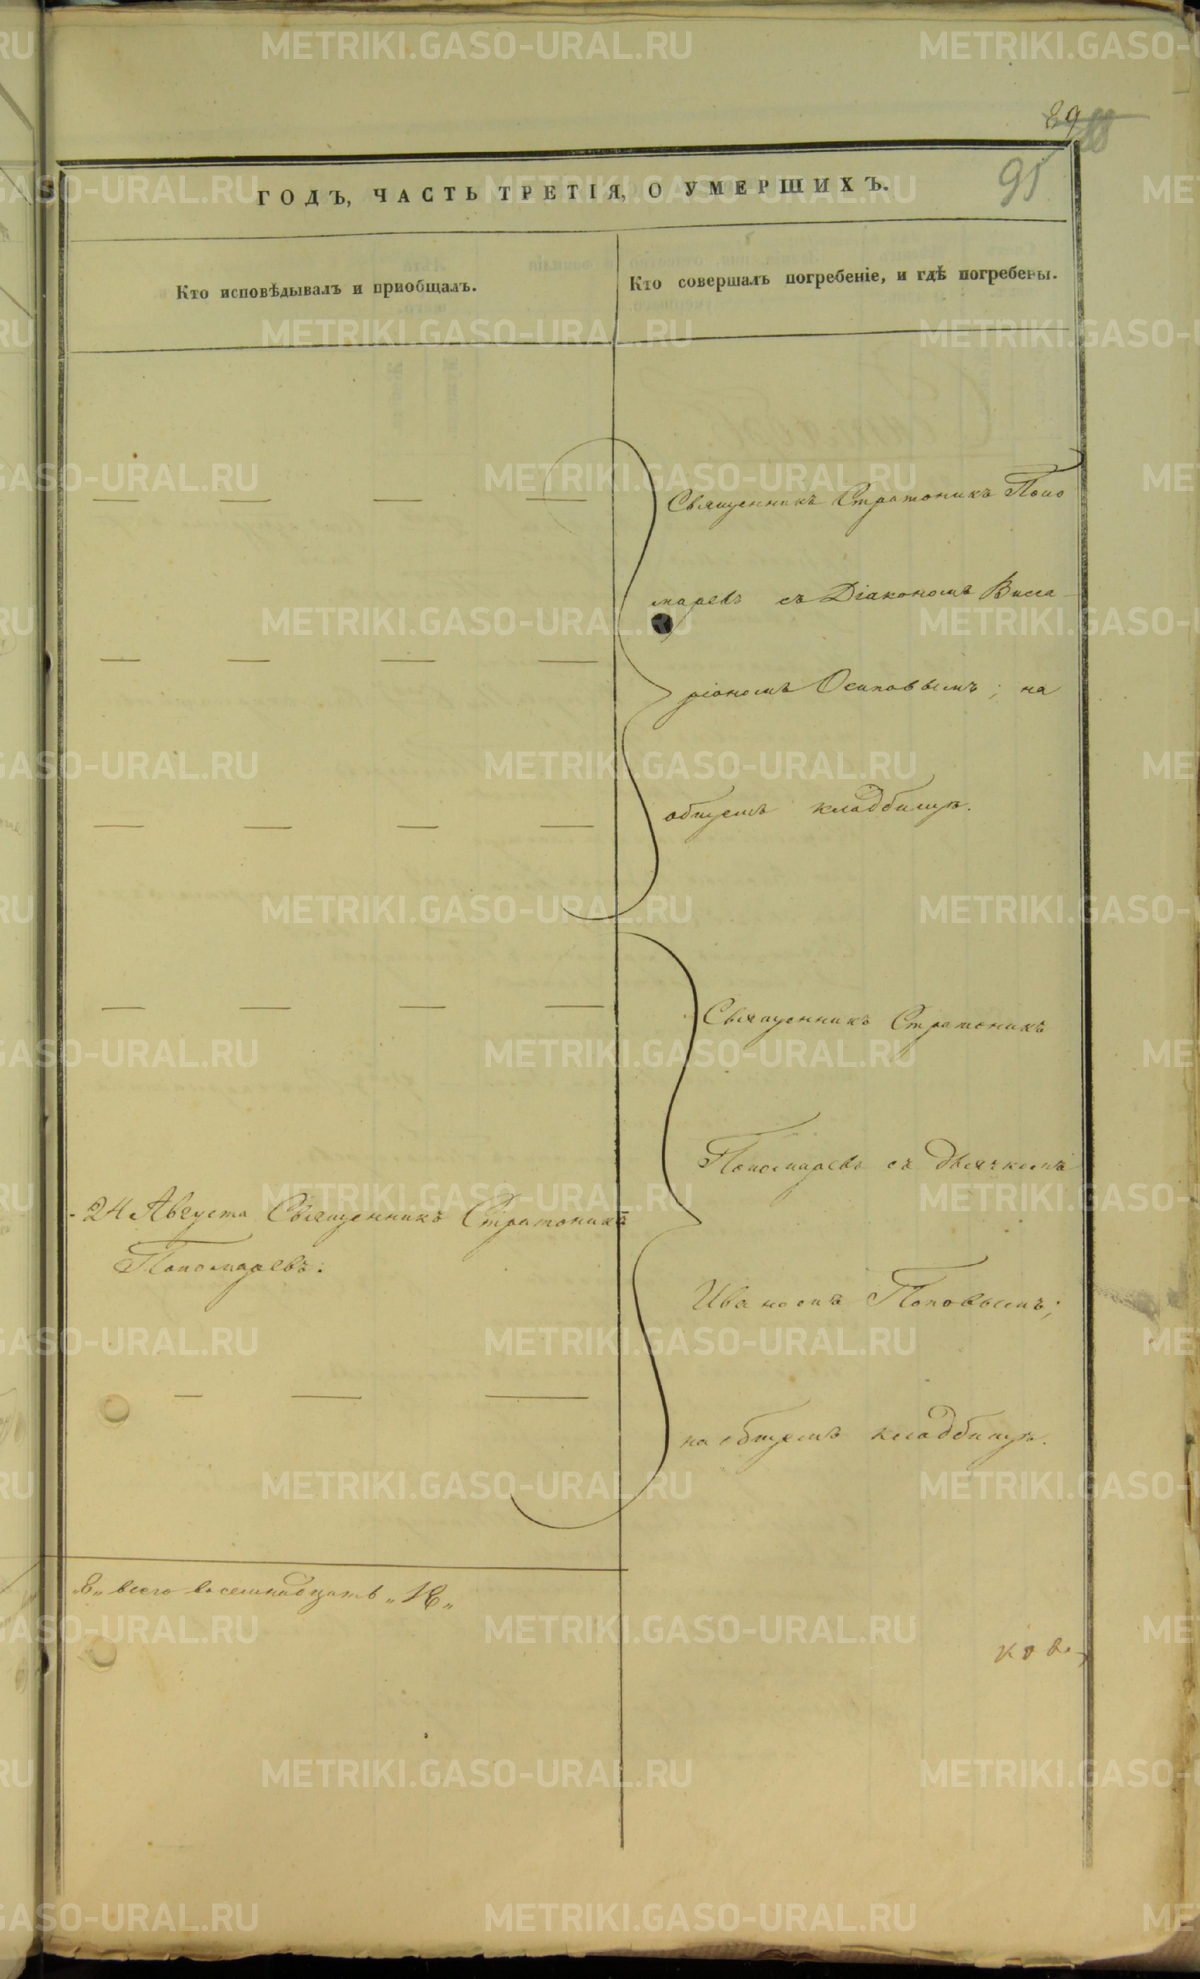 89
95
ГОДЪ, ЧАСТЬ ТРЕТІЯ, О УМЕРШИХЪ.
Кто исповѣдывалъ и пріобщалъ.
Кто совершалъ погребеніе, и гдѣ погребены.
Священникъ Стратоникъ Поно
маревъ съ Діакономъ Висса
ріономъ Осиповымъ; на
общемъ кладбищѣ.
Священникъ Стратоникъ
Пономаревъ съ дьячкомъ
Иваномъ Поповымъ;
на общемъ кладбищѣ.
24 Августа Священникъ Стратоникъ
Пономаревъ.
всего восемнадцать „18„
ковъ
METRIKI.GASO-URAL.RU